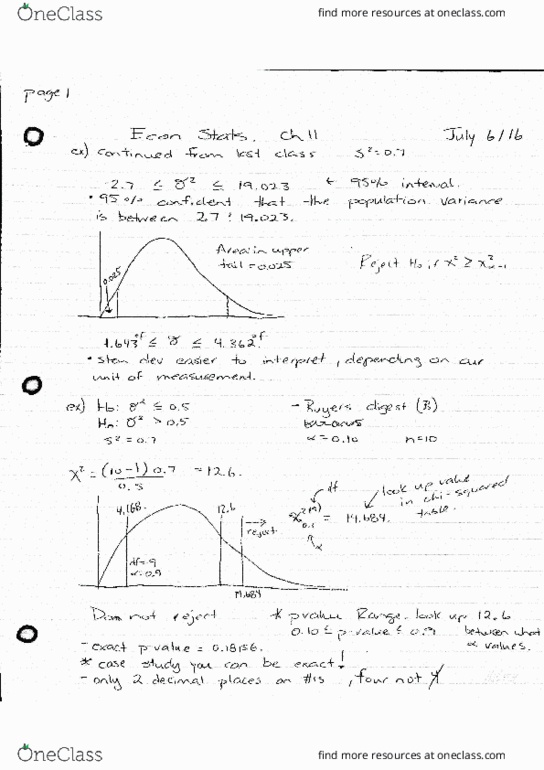 OneClass find more resources at oneclass.com
page 1
Econ Stats. Ch 11 July 6/16
ex) continued from last class S² = 0.7
2.7 ≤ σ² ≤ 19.023 ← 95% interval.
• 95% confident that the population variance
is between 2.7 & 19.023.
Area in upper
tail = 0.025
Reject Ho if x² ≥
0.025
1.643°f ≤ σ ≤ 4.362°f.
• stan dev easier to interpret, depending on our
unit of measurement.
ex) Ho: σ² ≤ 0.5 - Buyers digest (B)
Ha: σ² > 0.5
s² = 0.7 α = 0.10 n=10
x² = (10-1) 0.7 = 12.6.
0.5
df look up value
in chi-squared
table.
= 14.684.
0.1
α
4.168. 12.6 → reject
df=9
α=0.9
14.684
Do not reject * p value Range. look up 12.6
0.10 ≤ p-value ≤ 0.9 between what
α values.
- exact p-value = 0.18156.
* case study you can be exact!
- only 2 decimal places on #'s, four not
OneClass find more resources at oneclass.com